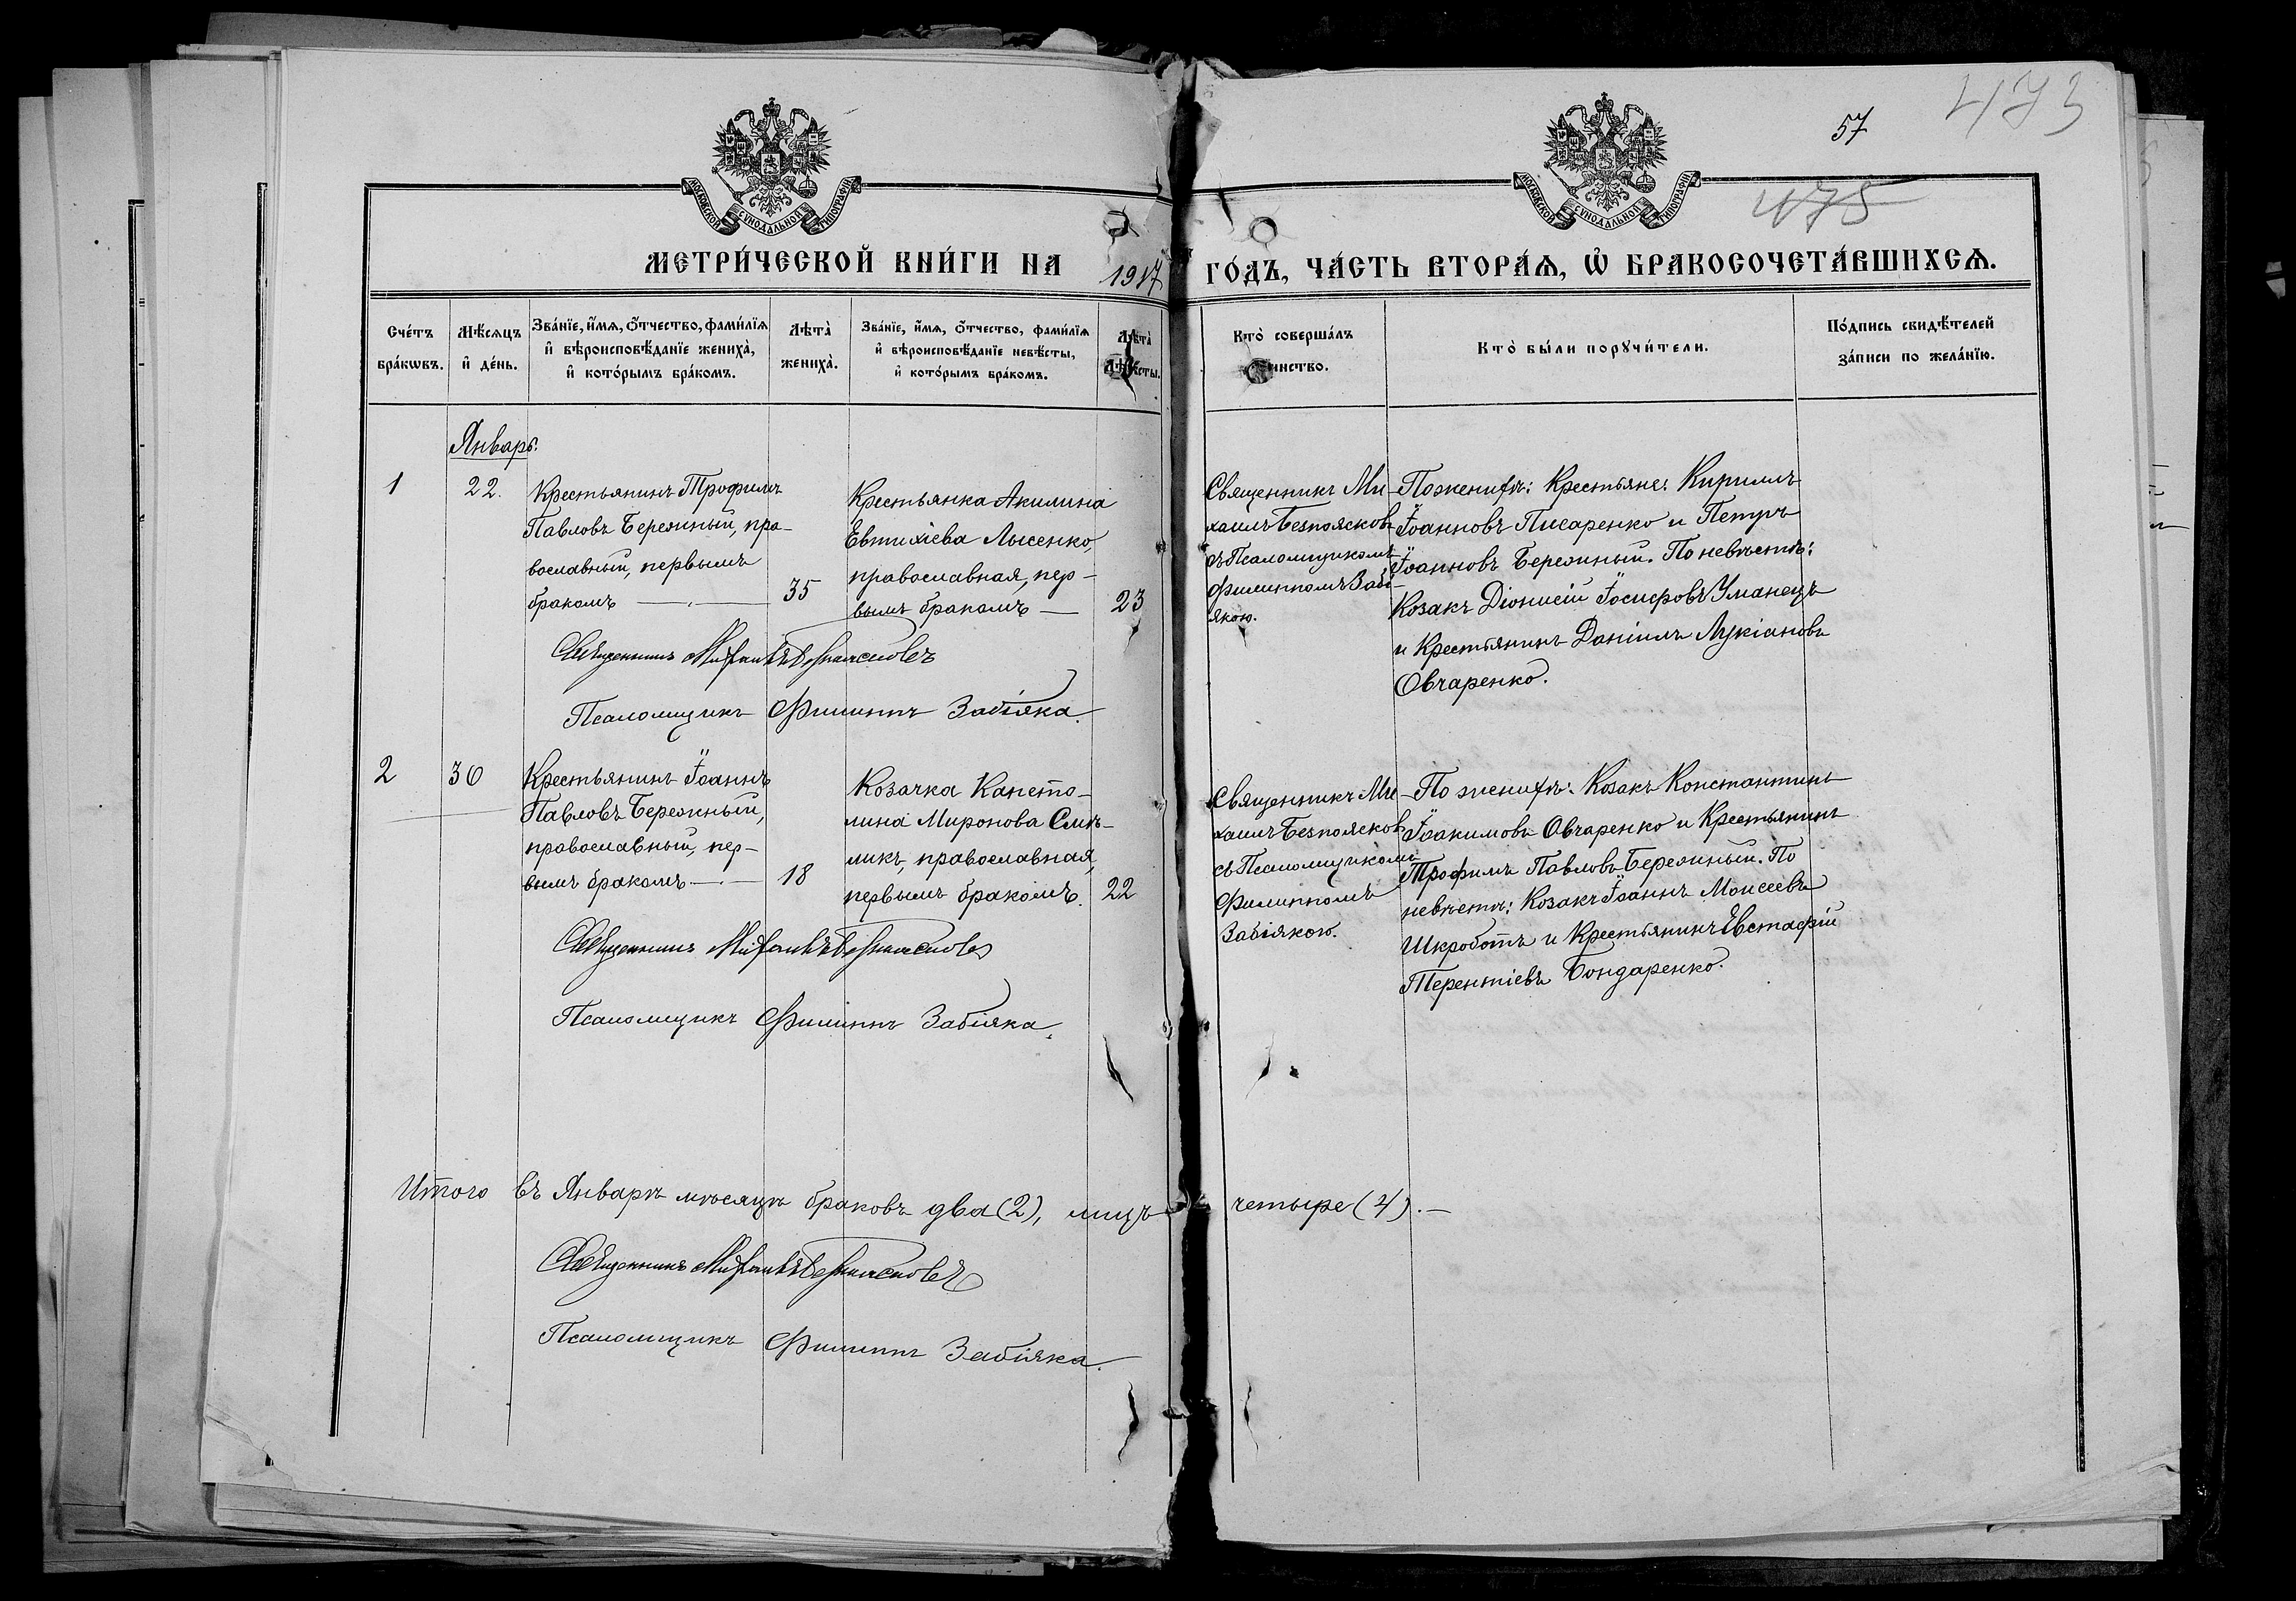 473
57
475
МОСКОВСКОЙ СѴНОДАЛЬНОЙ ТИПОГРАФІИ
МОСКОВСКОЙ СѴНОДАЛЬНОЙ ТИПОГРАФІИ
МЕТРИ́ЧЕСКОЙ КНИ́ГИ НА 1917 ГО́ДЪ, ЧА́СТЬ ВТОРА́Ѧ, Ѡ҆ БРАКОСОЧЕТА́ВШИХСѦ.
Сче́тъ бра́кѡвъ.
Мѣ́сѧцъ и҆ де́нь.
Зва́нїе, и҆́мѧ, ѻ҆́тчество, фами́лїѧ и҆ вѣроисповѣ́данїе жениха̀, и҆ кото́рымъ бра́комъ.
Лѣта̀ жениха̀.
Зва́нїе, и҆́мѧ, ѻ҆́тчество, фами́лїѧ и҆ вѣроисповѣ́данїе невѣ́сты, и҆ кото́рымъ бра́комъ.
Лѣта̀ невѣ́сты.
Кто̀ соверша́лъ таинство.
Кто̀ бы́ли порꙋчи́тели.
По́дпись свидѣ́телей за́писи по жела́нїю.
Январь.
1
22.
Крестьянинъ Трофимъ
Павловъ Бережный, пра-
вославный, первымъ
бракомъ
35
Крестьянка Акилина
Евтихіева Лысенко,
православная, пер-
вымъ бракомъ
23
Священникъ Ми-
хаилъ Безпоясковъ
съ Псаломщикомъ
Филиппомъ Забі-
якою.
По женихѣ: Крестьяне: Кириллъ
Іоанновъ Писаренко и Петръ
Іоанновъ Бережный. По невѣстѣ:
Козакъ Діонисій Іосифовъ Уманецъ
и Крестьянинъ Даніилъ Лукіановъ
Овчаренко.
Священникъ Михаилъ Безпоясковъ
Псаломщикъ Филиппъ Забіяка.
2
30
Крестьянинъ Іоаннъ
Павловъ Бережный,
православный, пер-
вымъ бракомъ
18
Козачка Капето-
лина Миронова Смѣ-
ликъ, православная,
первымъ бракомъ.
22
Священникъ Ми-
хаилъ Безпоясков
съ Псаломщикомъ
Филиппомъ
Забіякою.
По женихѣ: Козакъ Константинъ
Іоакимовъ Овчаренко и Крестьянинъ
Трофимъ Павловъ Бережный. По
невѣстѣ: Козакъ Іоаннъ Моисеевъ
Шкроботъ и Крестьянинъ Евстафій
Терентіевъ Бондаренко.
Священникъ Михаилъ Безпоясковъ
Псаломщикъ Филиппъ Забіяка.
Итого въ Январѣ мѣсяцѣ браковъ два (2), лицъ четыре (4).
Священникъ Михаилъ Безпоясковъ
Псаломщикъ Филиппъ Забіяка.